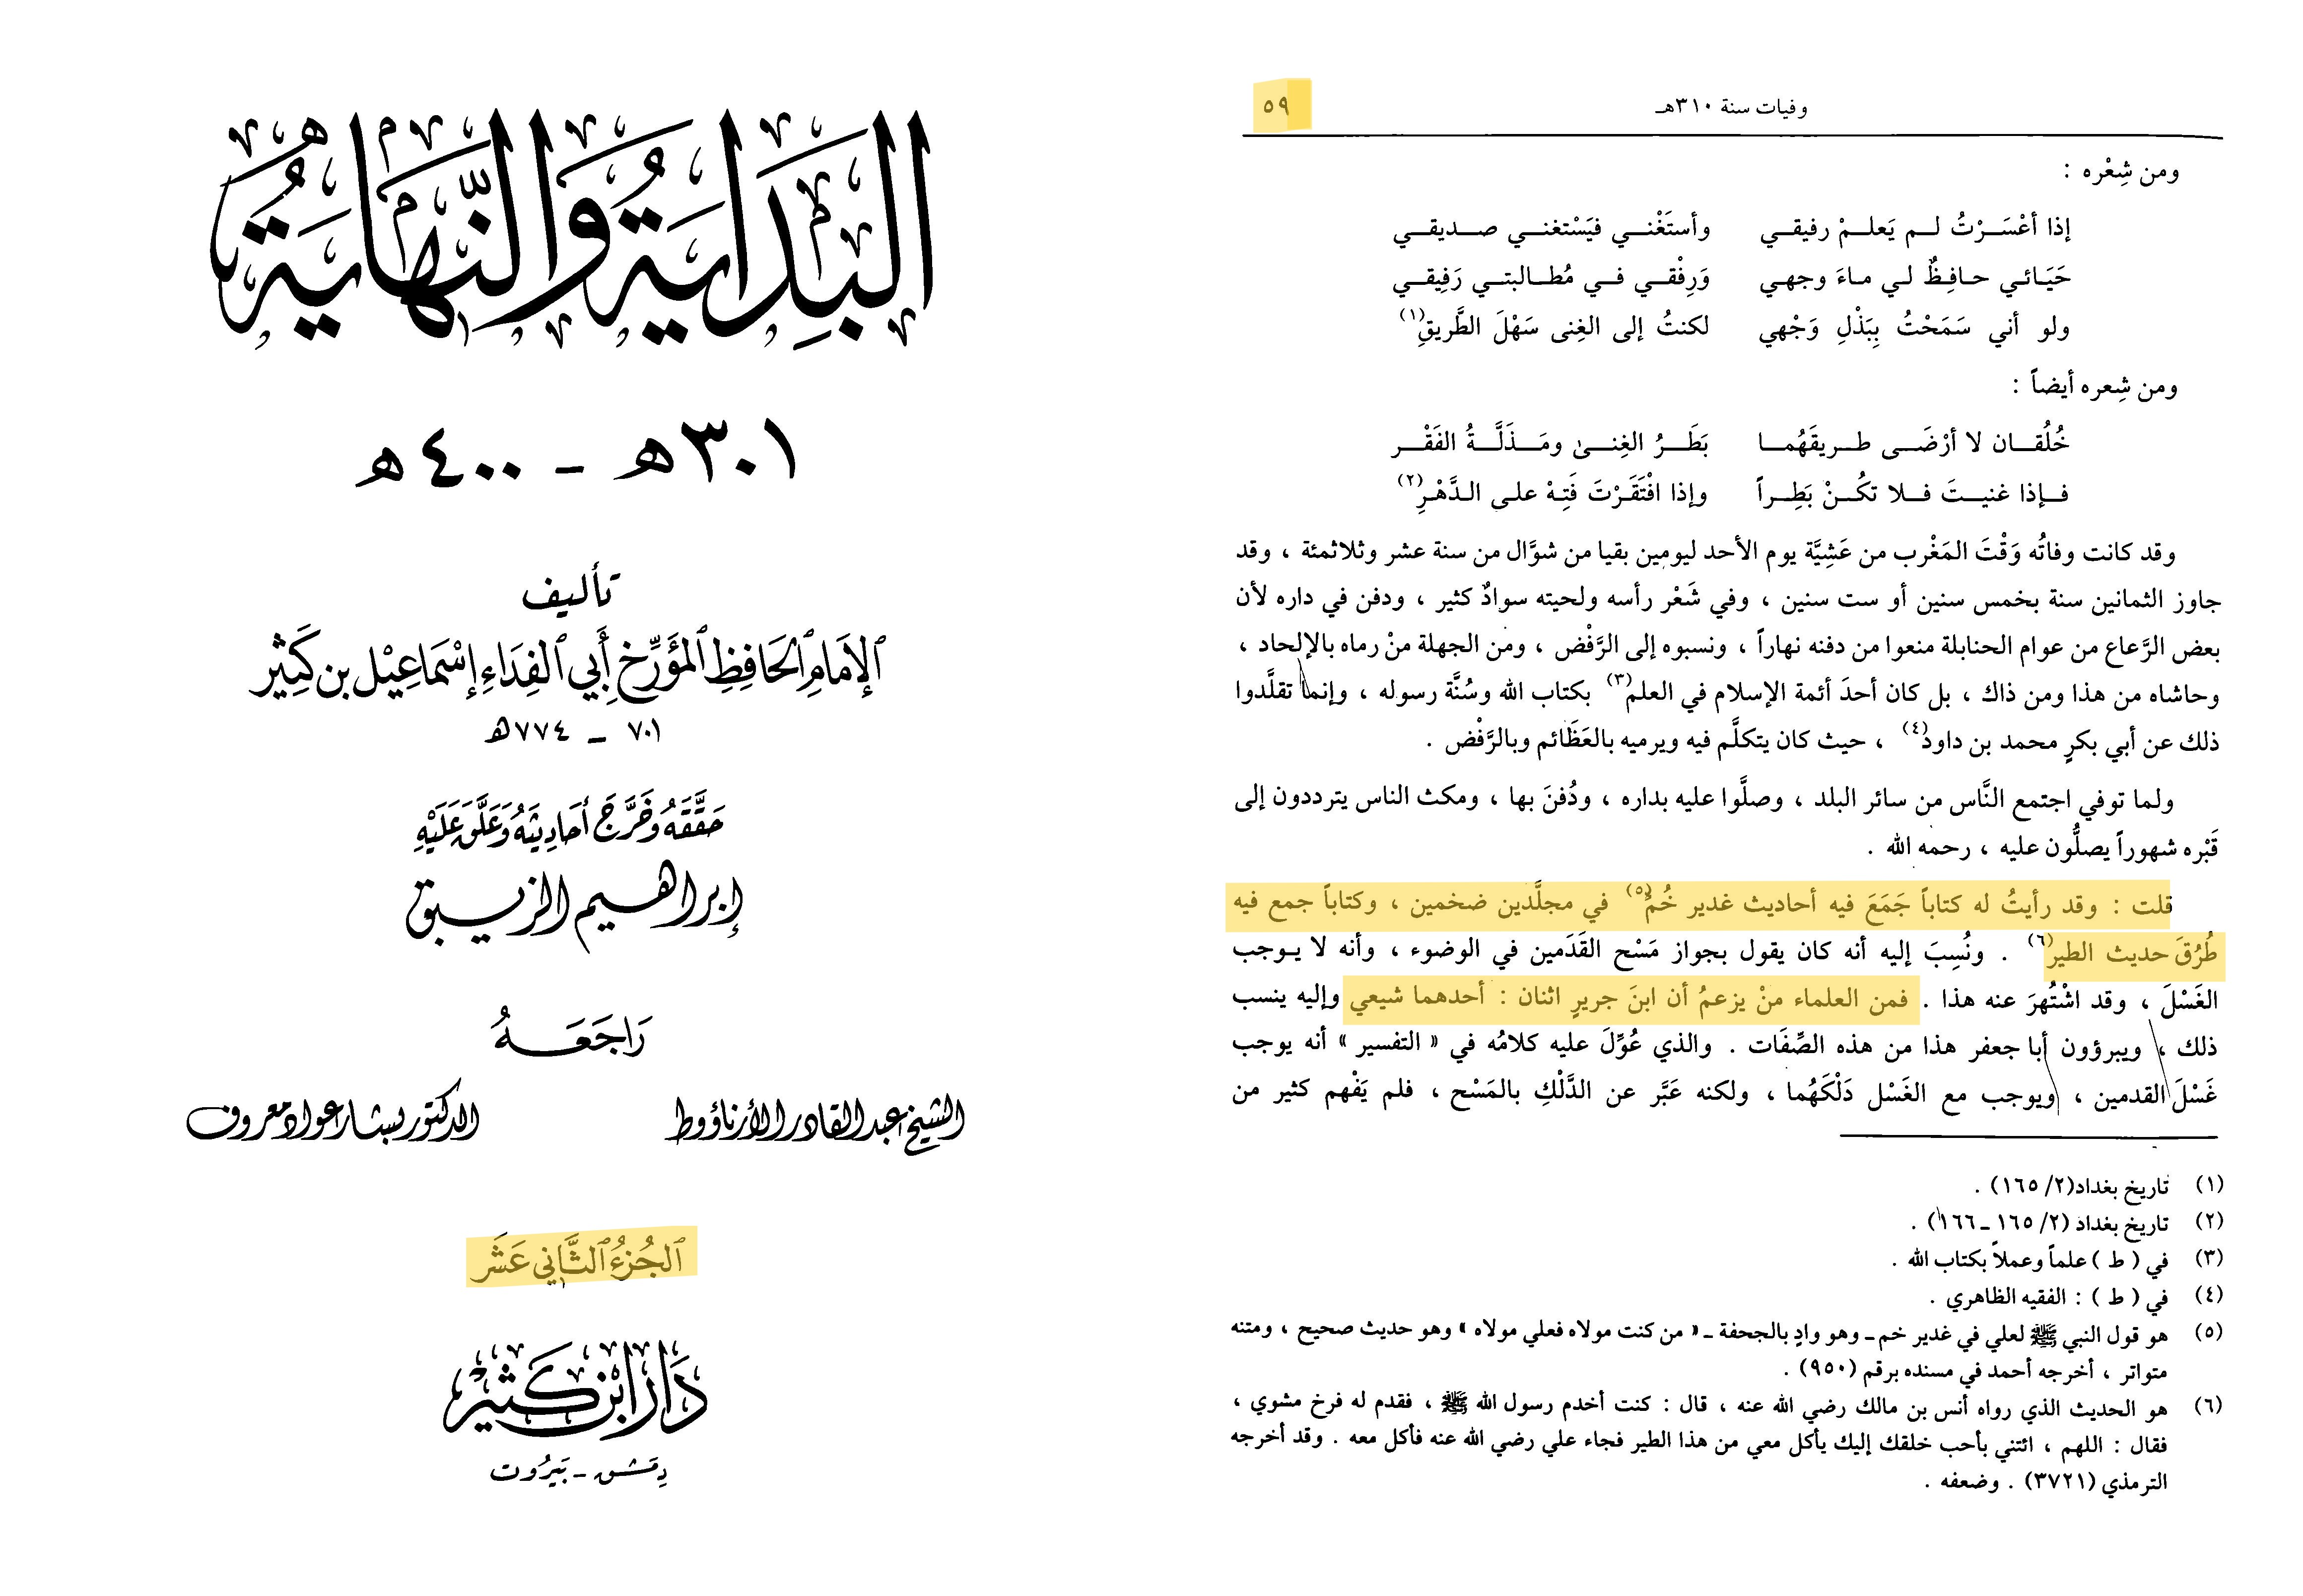 البداية والنهاية
٣٠١ هـ - ٤٠٠ هـ
تأليف
الإمام الحافظ المؤرخ أبي الفداء إسماعيل بن كثير
٧٠١ - ٧٧٤ هـ
حققه وخرج أحاديثه وعلق عليه
إبراهيم الزيبق
راجعه
الشيخ عبد القادر الأرناؤوط الدكتور بشار عواد معروف
الجزء الثاني عشر
دار ابن كثير
دمشق - بيروت
وفيات سنة ٣١٠هـ ٥٩
ومن شِعْره :
إذا أعْسَرْتُ لم يَعلمْ رفيقي وأستَغْني فيَسْتغني صديقي
حَيَائي حافِظٌ لي ماءَ وجهي وَرِفْقي في مُطالبتي رَفِيقي
ولو أني سَمَحْتُ بِبَذْلِ وَجْهي لكنتُ إلى الغِنى سَهْلَ الطَّريقِ(١)
ومن شِعره أيضاً :
خُلُقان لا أرْضَى طريقَهُما بَطَرُ الغِنىٰ ومَذَلَّةُ الفَقْر
فإذا غنيتَ فلا تكُنْ بَطِراً وإذا افْتَقَرْتَ فَتِهْ على الدَّهْرِ(٢)
وقد كانت وفاتُه وَقْتَ المَغْرب من عَشِيَّة يوم الأحد ليومين بقيا من شوَّال من سنة عشر وثلاثمئة ، وقد
جاوز الثمانين سنة بخمس سنين أو ست سنين ، وفي شَعْر رأسه ولحيته سوادٌ كثير ، ودفن في داره لأن
بعض الرَّعاع من عوام الحنابلة منعوا من دفنه نهاراً ، ونسبوه إلى الرَّفْض ، ومن الجهلة منْ رماه بالإلحاد ،
وحاشاه من هذا ومن ذاك ، بل كان أحدَ أئمة الإسلام في العلم(٣) بكتاب الله وسُنَّة رسوله ، وإنما تقلَّدوا
ذلك عن أبي بكرٍ محمد بن داود(٤) ، حيث كان يتكلَّم فيه ويرميه بالعَظَائم وبالرَّفْض .
ولما توفي اجتمع النَّاس من سائر البلد ، وصلَّوا عليه بداره ، ودُفنَ بها ، ومكث الناس يترددون إلى
قَبْره شهوراً يصلُّون عليه ، رحمه الله .
قلت : وقد رأيتُ له كتاباً جَمَعَ فيه أحاديث غدير خُمّ(٥) في مجلَّدين ضخمين ، وكتاباً جمع فيه
طُرُقَ حديث الطير(٦) . ونُسِبَ إليه أنه كان يقول بجواز مَسْح القَدَمين في الوضوء ، وأنه لا يوجب
الغَسْلَ ، وقد اشْتُهرَ عنه هذا . فمن العلماء منْ يزعمُ أن ابنَ جريرٍ اثنان : أحدهما شيعي وإليه ينسب
ذلك ، ويبرؤون أبا جعفر هذا من هذه الصِّفَات . والذي عُوِّلَ عليه كلامُه في « التفسير » أنه يوجب
غَسْلَ القدمين ، ويوجب مع الغَسْل دَلْكَهُما ، ولكنه عَبَّر عن الدَّلْكِ بالمَسْح ، فلم يَفْهم كثير من
(١) تاريخ بغداد(٢/ ١٦٥) .
(٢) تاريخ بغداد (٢/ ١٦٥ ـ ١٦٦) .
(٣) في ( ط ) علماً وعملاً بكتاب الله .
(٤) في ( ط ) : الفقيه الظاهري .
(٥) هو قول النبي ﷺ لعلي في غدير خم ـ وهو وادٍ بالجحفة ـ « من كنت مولاه فعلي مولاه » وهو حديث صحيح ، ومتنه
متواتر ، أخرجه أحمد في مسنده برقم (٩٥٠) .
(٦) هو الحديث الذي رواه أنس بن مالك رضي الله عنه ، قال : كنت أخدم رسول الله ﷺ ، فقدم له فرخ مشوي ،
فقال : اللهم ، ائتني بأحب خلقك إليك يأكل معي من هذا الطير فجاء علي رضي الله عنه فأكل معه . وقد أخرجه
الترمذي (٣٧٢١) . وضعفه .